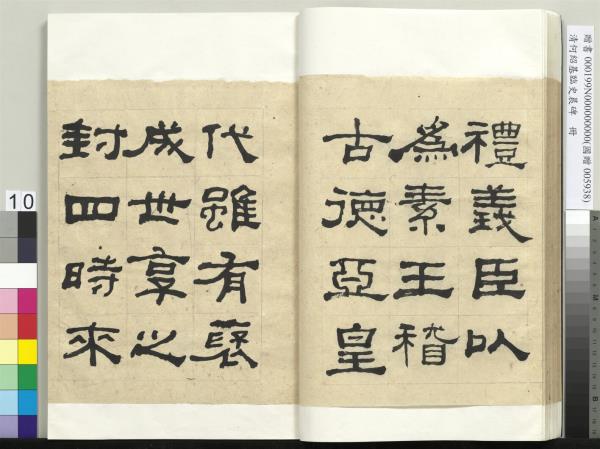 禮義臣以
為素王稽
古德亞皇
代雖有褒
成世享之
封四時來
贈書 000199N000000000(國贈 005938)
清何紹基臨史晨碑 冊
10
A
B